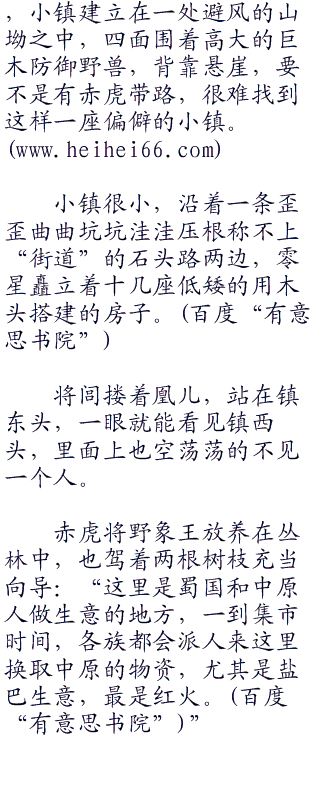 ，小镇建立在一处避风的山
坳之中，四面围着高大的巨
木防御野兽，背靠悬崖，要
不是有赤虎带路，很难找到
这样一座偏僻的小镇。
(www.heihei66.com)
小镇很小，沿着一条歪
歪曲曲坑坑洼洼压根称不上
“街道”的石头路两边，零
星矗立着十几座低矮的用木
头搭建的房子。(百度“有意
思书院”)
将闾搂着凰儿，站在镇
东头，一眼就能看见镇西
头，里面上也空荡荡的不见
一个人。
赤虎将野象王放养在丛
林中，也驾着两根树枝充当
向导：“这里是蜀国和中原
人做生意的地方，一到集市
时间，各族都会派人来这里
换取中原的物资，尤其是盐
巴生意，最是红火。(百度
“有意思书院”)”